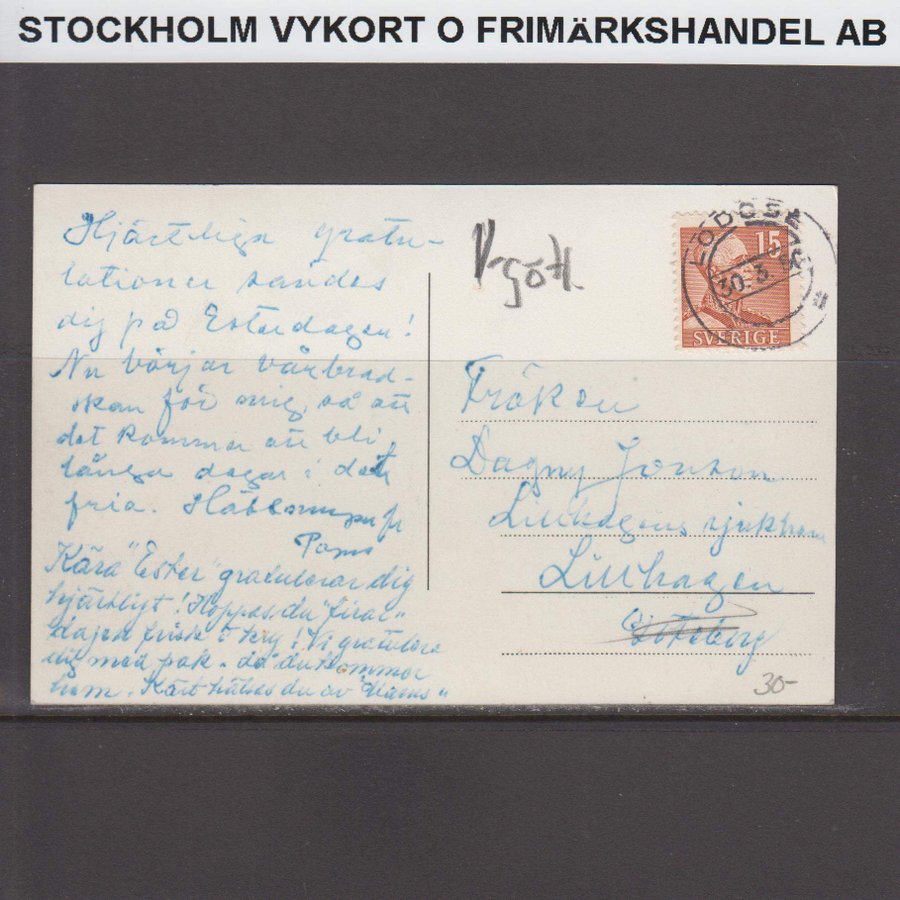 STOCKHOLM VYKORT O FRIMäRKSHANDEL AB
Hjärtliga gratu-
lationer sändes
dig på Esterdagen!
Nu börjar vårbråd-
skan för mig, så att
det kommer att bli
långa dagar i det
fria.
Kära "Ester" gratulerar dig
hjärtligt! Hoppas du "firar"
dagen frisk o kry! Vi gratulera
dig med pak. då du kommer
hem. Kärt hälsas du av "Mams"
V-göt.
LÖDÖSE
30. 3.
15
SVERIGE
Fröken
Dagny Jonson
Lillhagens sjukhem
Lillhagen
Göteborg
30-